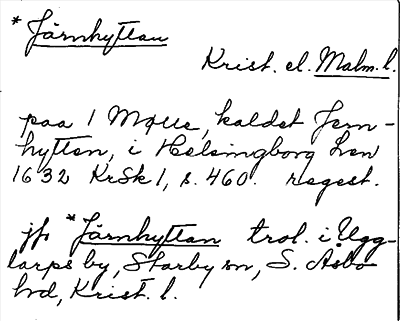 * Järnhyttan
Krist. el. Malm. l.
paa 1 Mølle, kaldet Jern-
hytten, i Helsingborg Len
1632 KrSk 1, s. 460. regest.
jfr *Järnhyttan trol. i Ugg-
larps by, Starby sn, S. Åsbo
hd, Krist. l.